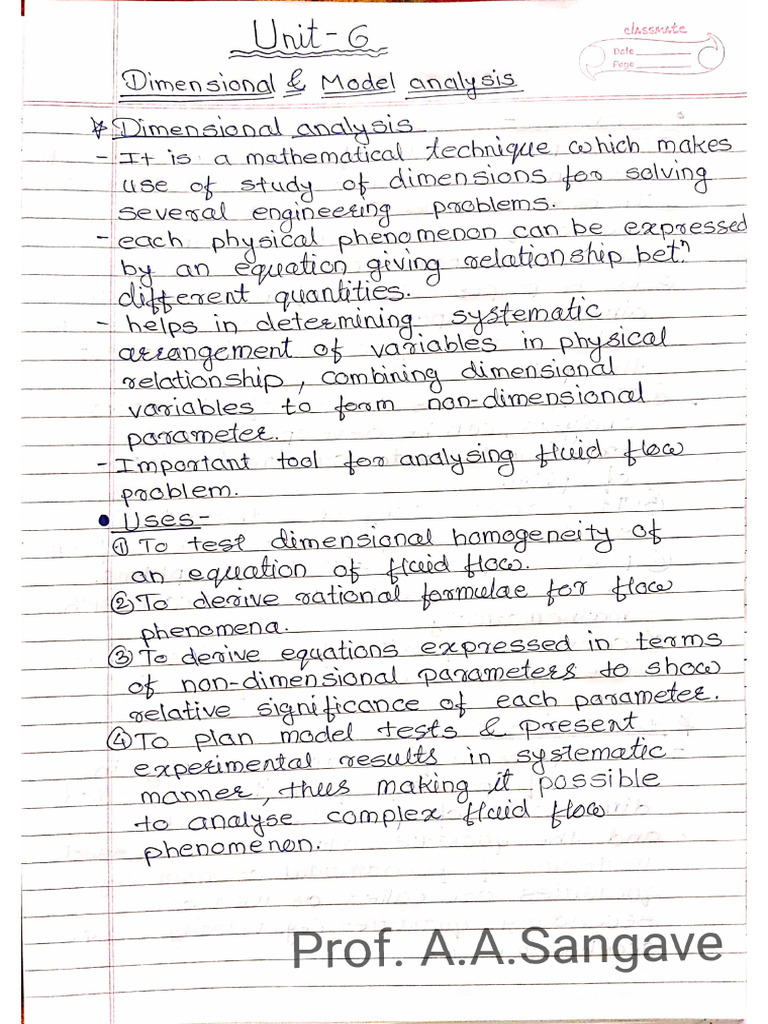 Unit-6
classmate
Date
Page
Dimensional & Model analysis
* Dimensional analysis
- It is a mathematical technique which makes
use of study of dimensions for solving
several engineering problems.
- each physical phenomenon can be expressed
by an equation giving relationship betn
different quantities.
- helps in determining systematic
arrangement of variables in physical
relationship, combining dimensional
variables to form non-dimensional
parameter.
- Important tool for analysing fluid flow
problem.
• Uses-
① To test dimensional homogeneity of
an equation of fluid flow.
② To derive rational formulae for flow
phenomena.
③ To derive equations expressed in terms
of non-dimensional parameters to show
relative significance of each parameter.
④ To plan model tests & present
experimental results in systematic
manner, thus making it possible
to analyse complex fluid flow
phenomenon.
Prof. A.A.Sangave